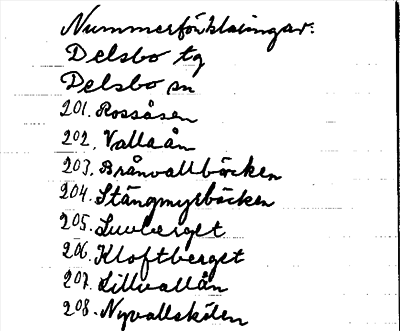 Nummerförklaringar:
Delsbo tg
Delsbo sn
201. Rossåsen
202. Vallaån
203. Brånvallbäcken
204. Stångmyrbäcken
205. Luvberget
206. Kloftberget
207. Lillvallån
208. Nyvallskölen